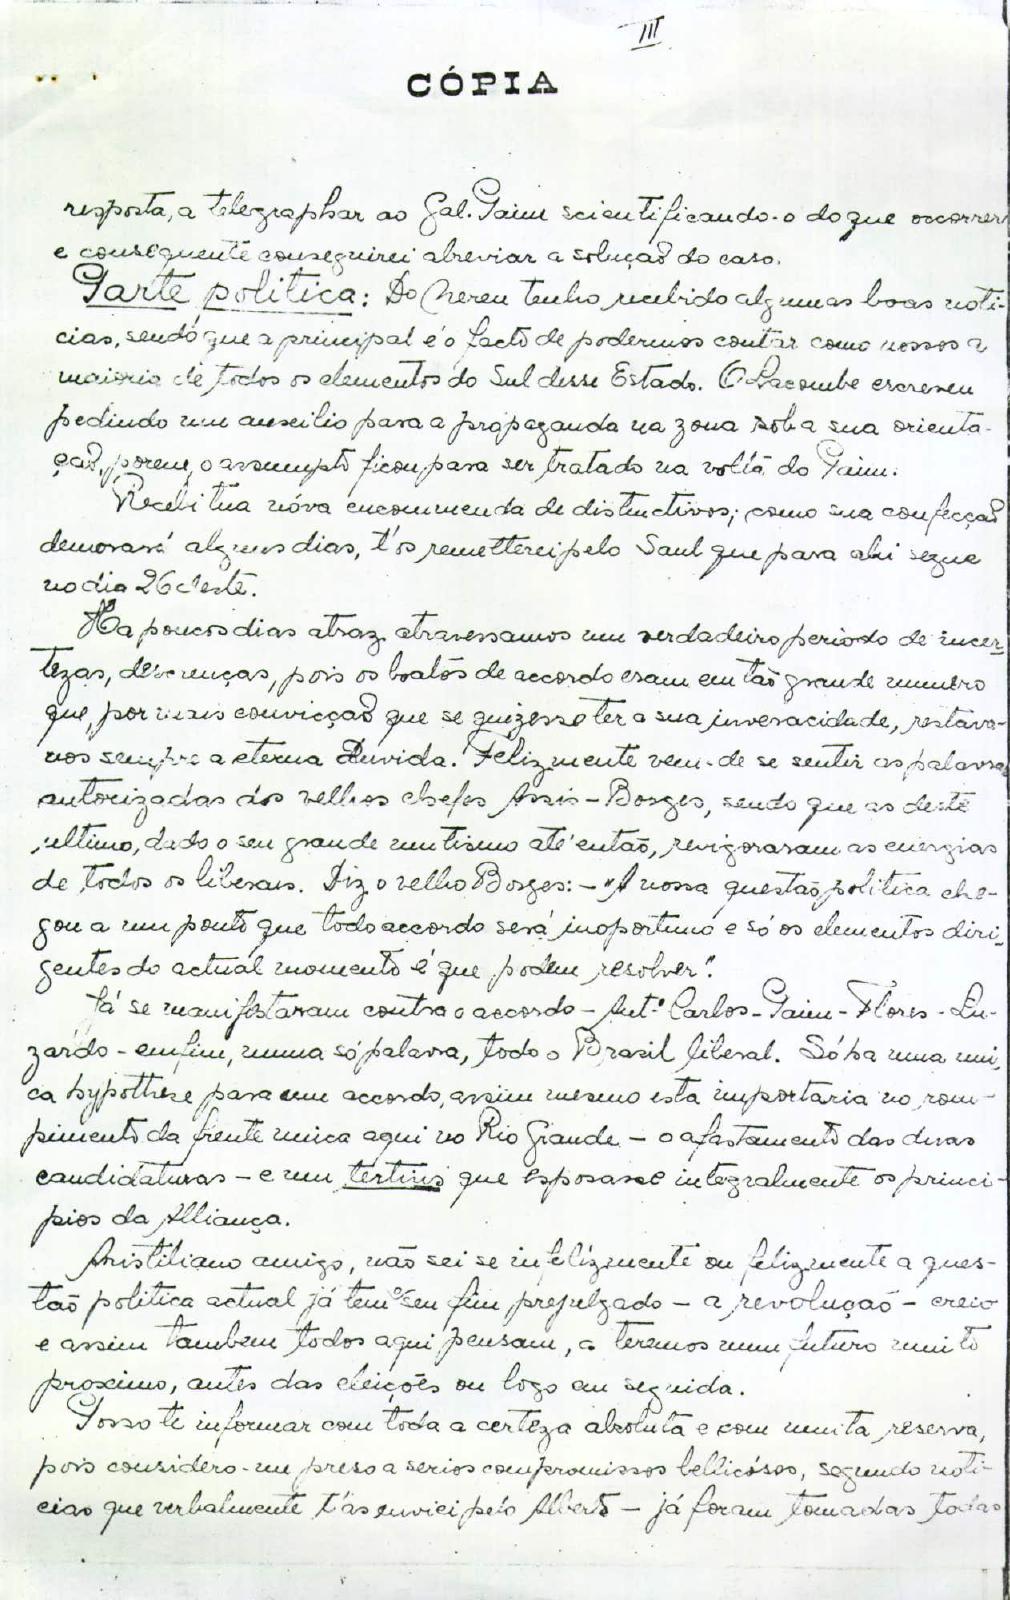 III
CÓPIA
resposta, a telegraphar ao Gal. Paim scientificando-o do que occorrer
e consequente conseguirei abreviar a solução do caso.
Parte politica: Do Nereu tenho recebido algumas boas noti-
cias, sendo que a principal é o facto de podermos contar como nossos a
maioria de todos os elementos do Sul desse Estado. O Lacombe escreveu
pedindo um auxilio para a propaganda na zona sob a sua orienta-
ção, porem, o assumpto ficou para ser tratado na volta do Paim.
Recebi tua nóva encommenda de distinctivos; como sua confecção
demorará alguns dias, t'os remetterei pelo Saul que para ahi segue
no dia 26 deste.
Ha poucos dias atraz atravessamos um verdadeiro periodo de incer-
tezas, descrenças, pois os boatos de accordo eram em tão grande numero
que, por mais convicção que se quizesse ter a sua inveracidade, restava-
nos sempre a eterna Duvida. Felizmente vem-de se sentir as palavras
autorizadas dos velhos chefes Assis-Borges, sendo que as deste
ultimo, dado o seu grande mutismo até então, revigoraram as energias
de todos os liberais. Diz o velho Borges: - "A nossa questão politica che-
gou a um ponto que todo accordo será inoportuno e só os elementos diri-
gentes do actual momento é que podem resolver".
Já se manifestaram contra o accordo - Antº Carlos - Paim - Flores - Lu-
zardo - emfim, numa só palavra, todo o Brasil liberal. Só ha uma uni-
ca hypothese para um accordo, assim mesmo esta importaria no rom-
pimento da frente unica aqui no Rio Grande - o afastamento das duas
candidaturas - e um tertius que esposasse integralmente os princi-
pios da Alliança.
Aristiliano amigo, não sei se infelizmente ou felizmente a ques-
tão politica actual já tem o seu fim prejulgado - a revolução - creio
e assim tambem todos aqui pensam, a teremos num futuro muito
proximo, antes das eleições ou logo em seguida.
Posso te informar com toda a certeza absoluta e com muita reserva,
pois considero-me preso a serios compromissos bellicósos, segundo noti-
cias que verbalmente t'as enviei pelo Alberto - já foram tomadas todas